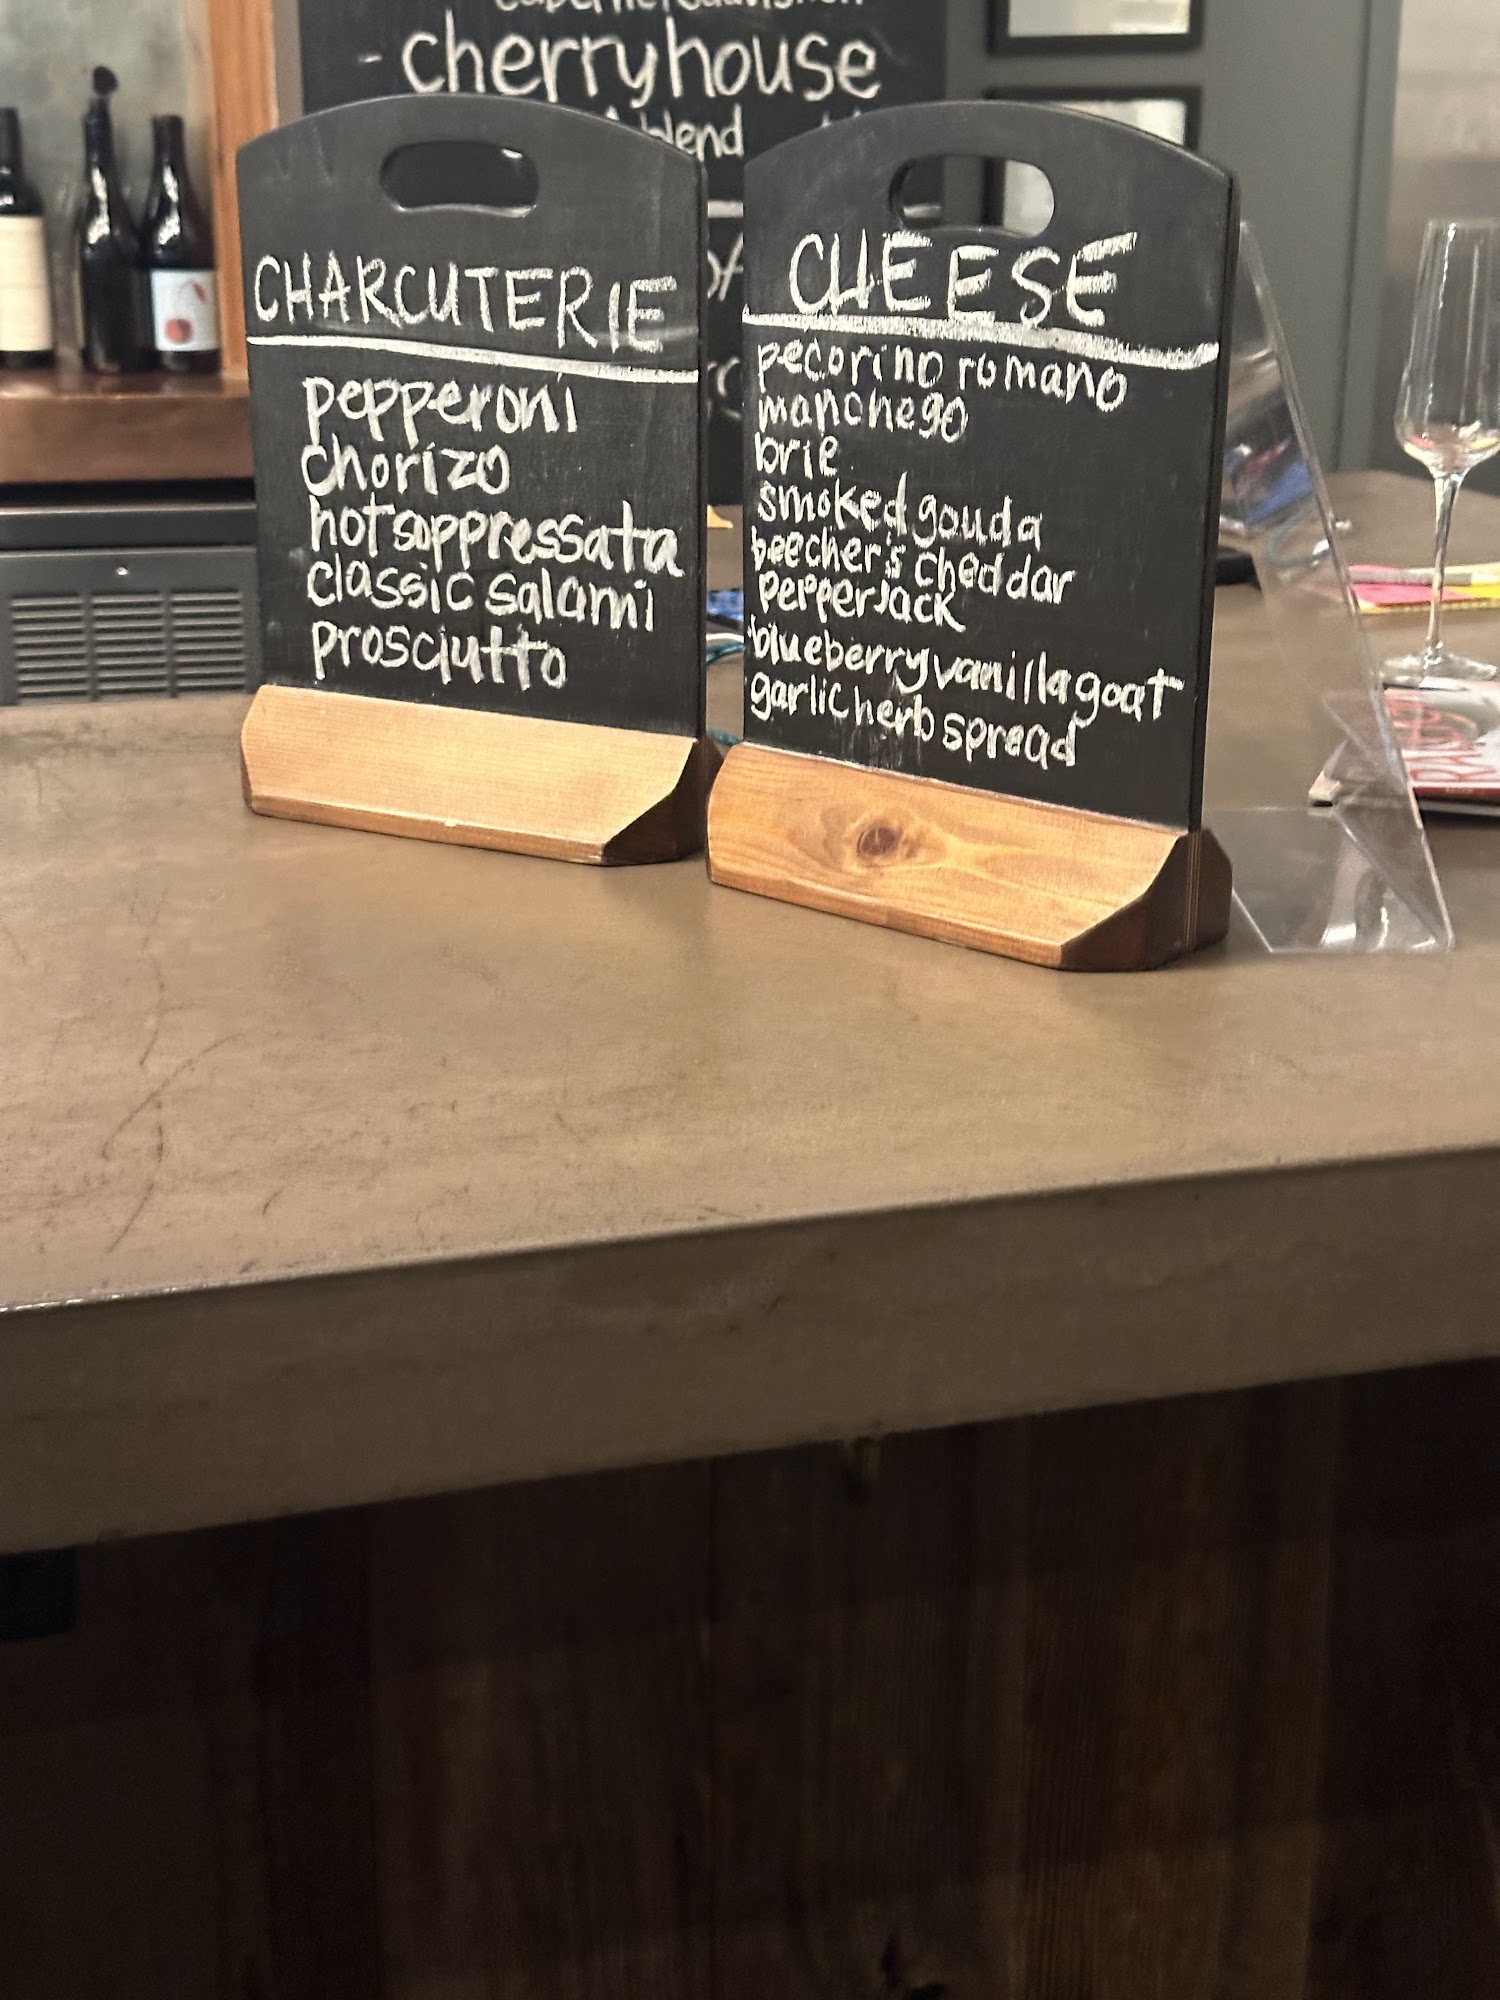 - cherryhouse
blend
CHARCUTERIE
pepperoni
chorizo
hot soppressata
classic salami
prosciutto
CHEESE
pecorino romano
manchego
brie
smoked gouda
beecher's cheddar
pepperjack
blueberry vanilla goat
garlic herb spread